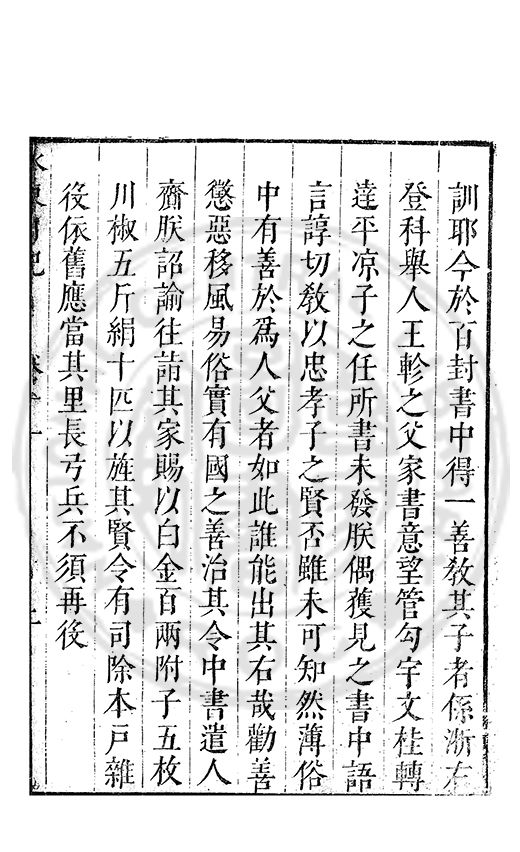 訓耶今於百封書中得一善敎其子者係浙右
登科舉人王軫之父家書意望管勾宇文桂轉
達平凉子之任所書未發朕偶獲見之書中語
言諄切敎以忠孝子之賢否雖未可知然薄俗
中有善於爲人父者如此誰能出其右哉勸善
懲惡移風易俗實有國之善治其令中書遣人
齎朕詔諭往詣其家賜以白金百兩附子五枚
川椒五斤絹十匹以旌其賢令有司除本戶雜
役依舊應當其里長弓兵不須再役